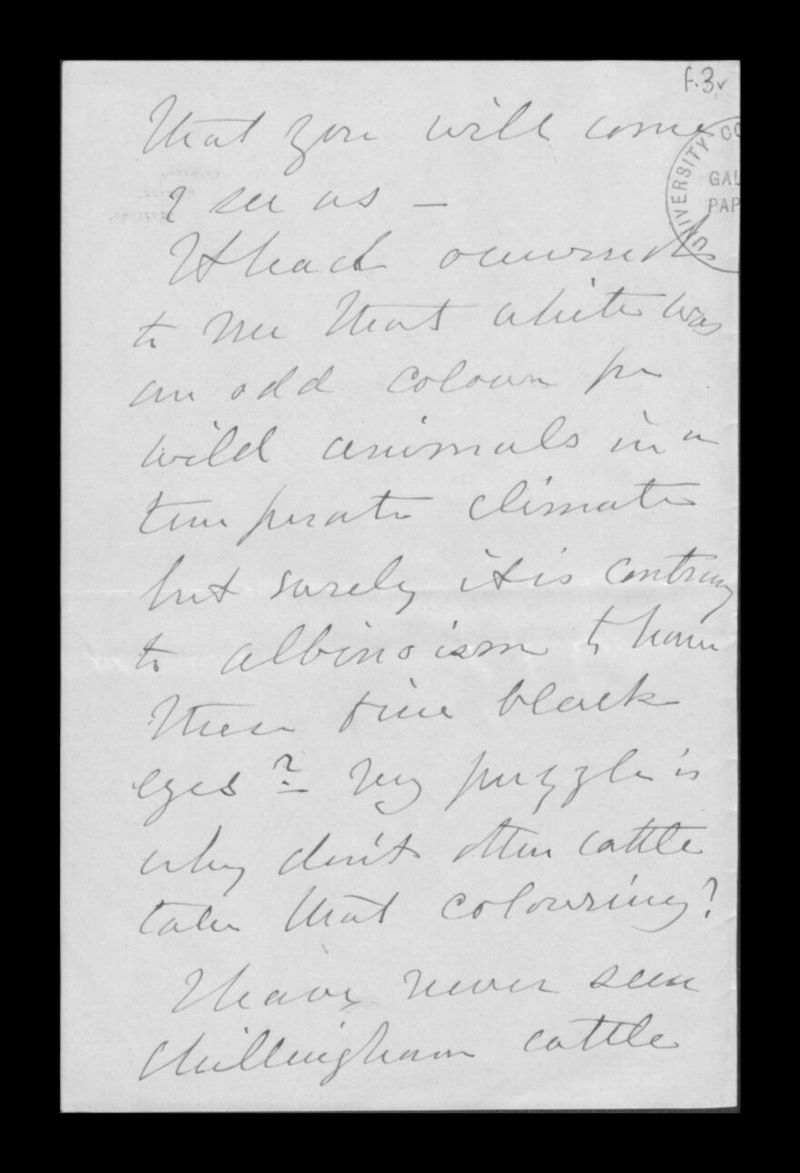 f.3v
that you will come
& see us —
It had occurred
to me that white was
an odd colour for
wild animals in a
temperate climate
but surely it is contrary
to albinoism to have
these fine black
eyes? My puzzle is
why don't other cattle
take that colouring?
I have never seen
Chillingham cattle
UNIVERSITY CO
GAL
PAP